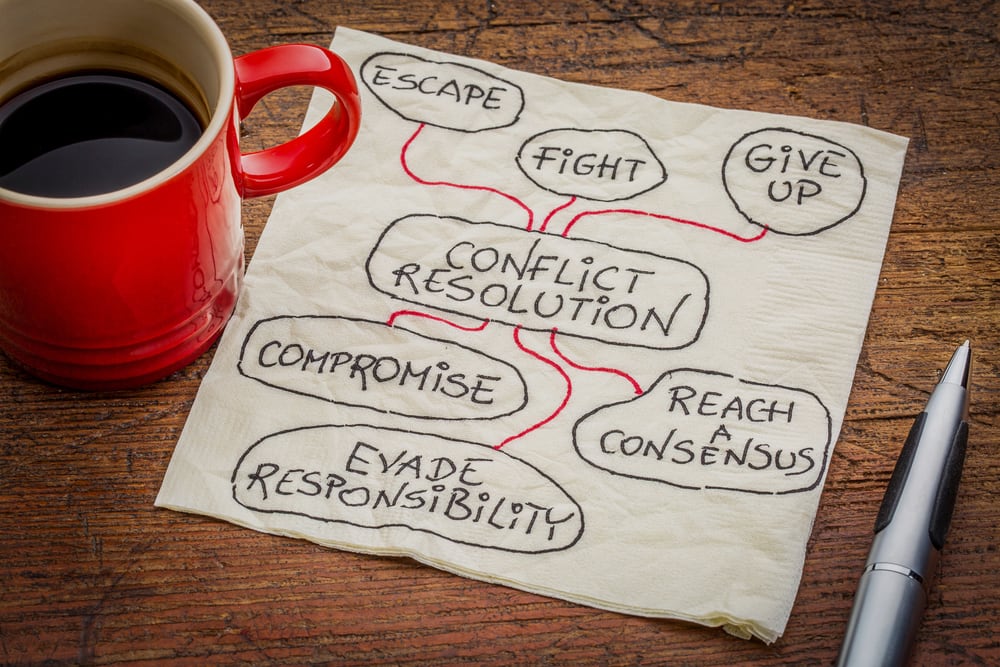 ESCAPE
FiGHT
GiVE
UP
CONFLICT
RESOLUTION
COMPROMiSE
REACH
A
CONSENSUS
EVADE
RESPONSiBiLiTY